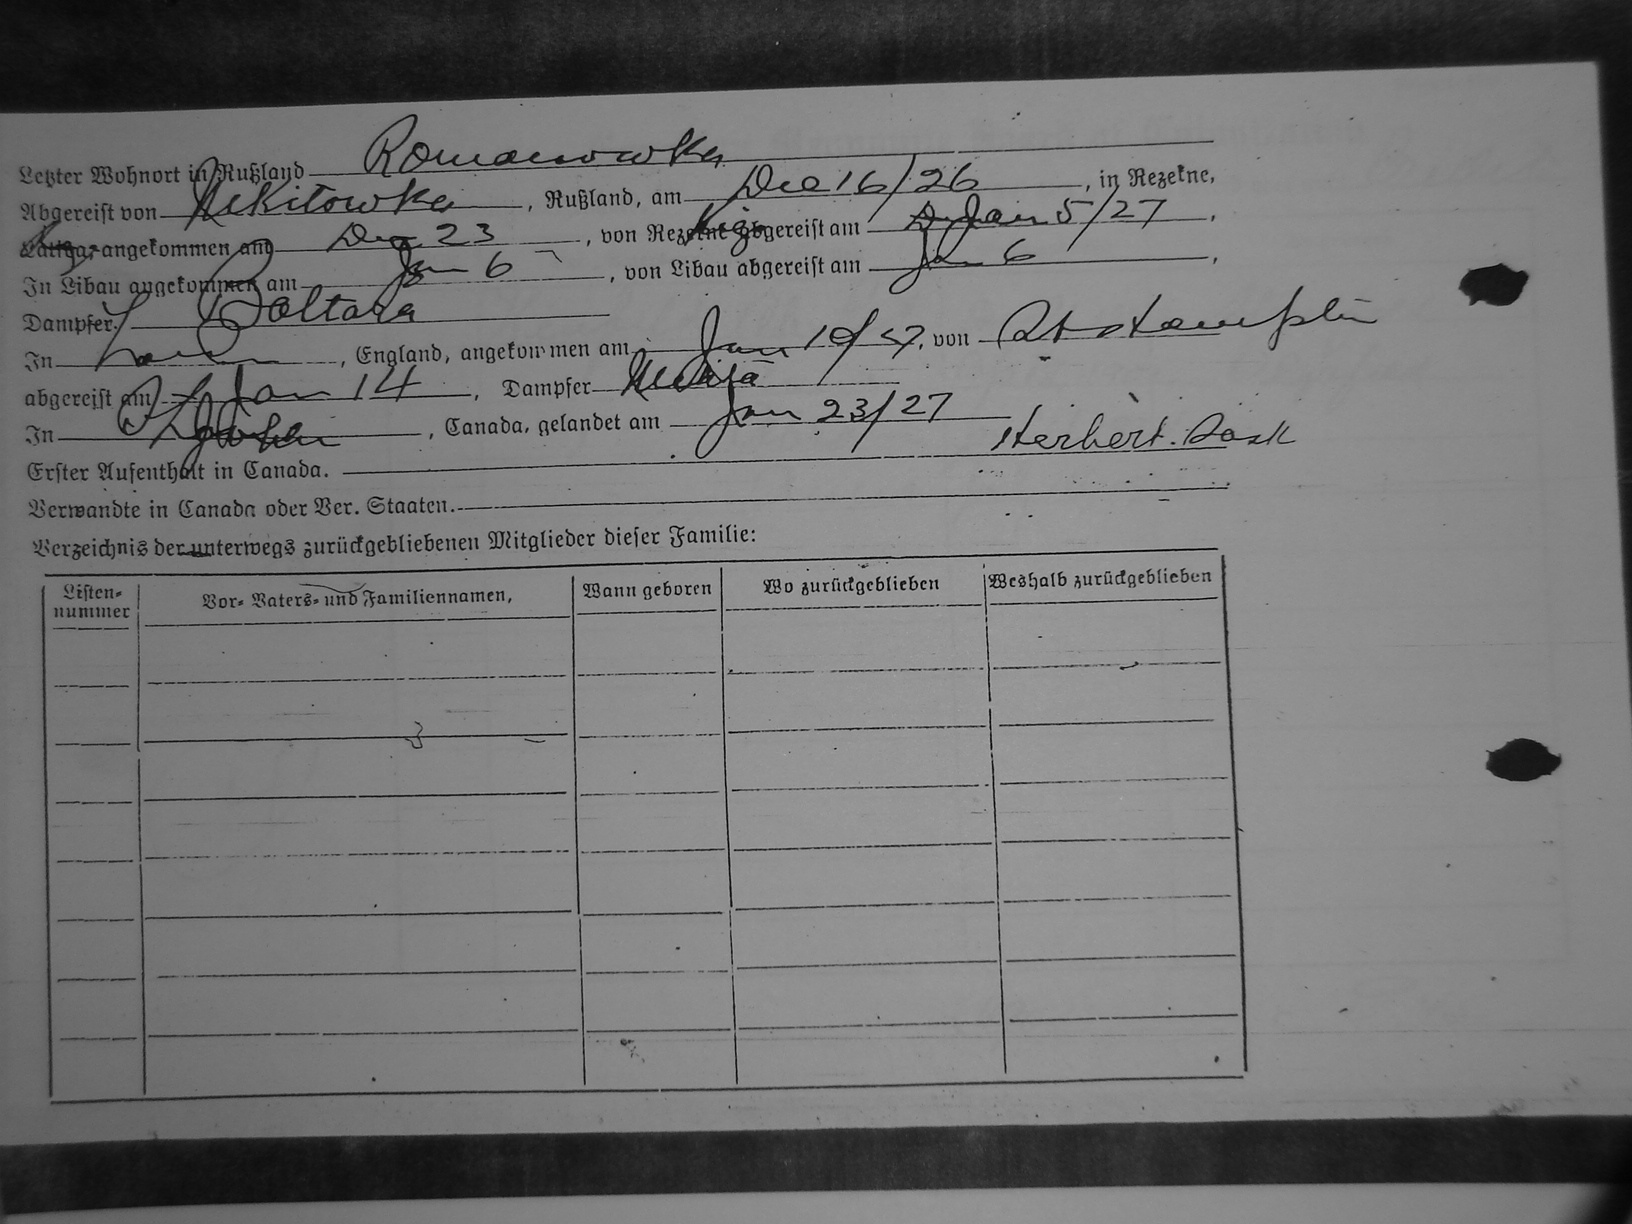 Letzter Wohnort in Rußland Romanowka
Abgereist von Nikitowka, Rußland, am Dec 16/26, in Rezekne,
angekommen am Dec 23, von abgereist am Jan 5/27,
In Libau angekommen am Jan 6, von Libau abgereist am Jan 6,
Dampfer Baltara
In, England, angekommen am Jan 10/27, von
abgereist am Jan 14, Dampfer Melita
In, Canada, gelandet am Jan 23/27
Herbert.
Erster Aufenthalt in Canada.
Verwandte in Canada oder Ver. Staaten.
Verzeichnis der unterwegs zurückgebliebenen Mitglieder dieser Familie:
Listen-nummer Vor- Vaters- und Familiennamen, Wann geboren Wo zurückgeblieben Weshalb zurückgeblieben